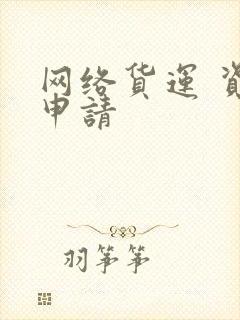 网络貨運
申請
羽筝筝